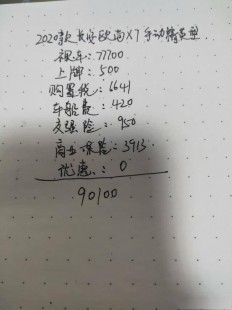 2020款长安欧尚X7手动精英型
裸车：77700
上牌：500
购置税：6641
车船费：420
交强险：950
商业保险：3913
优惠：0
90100